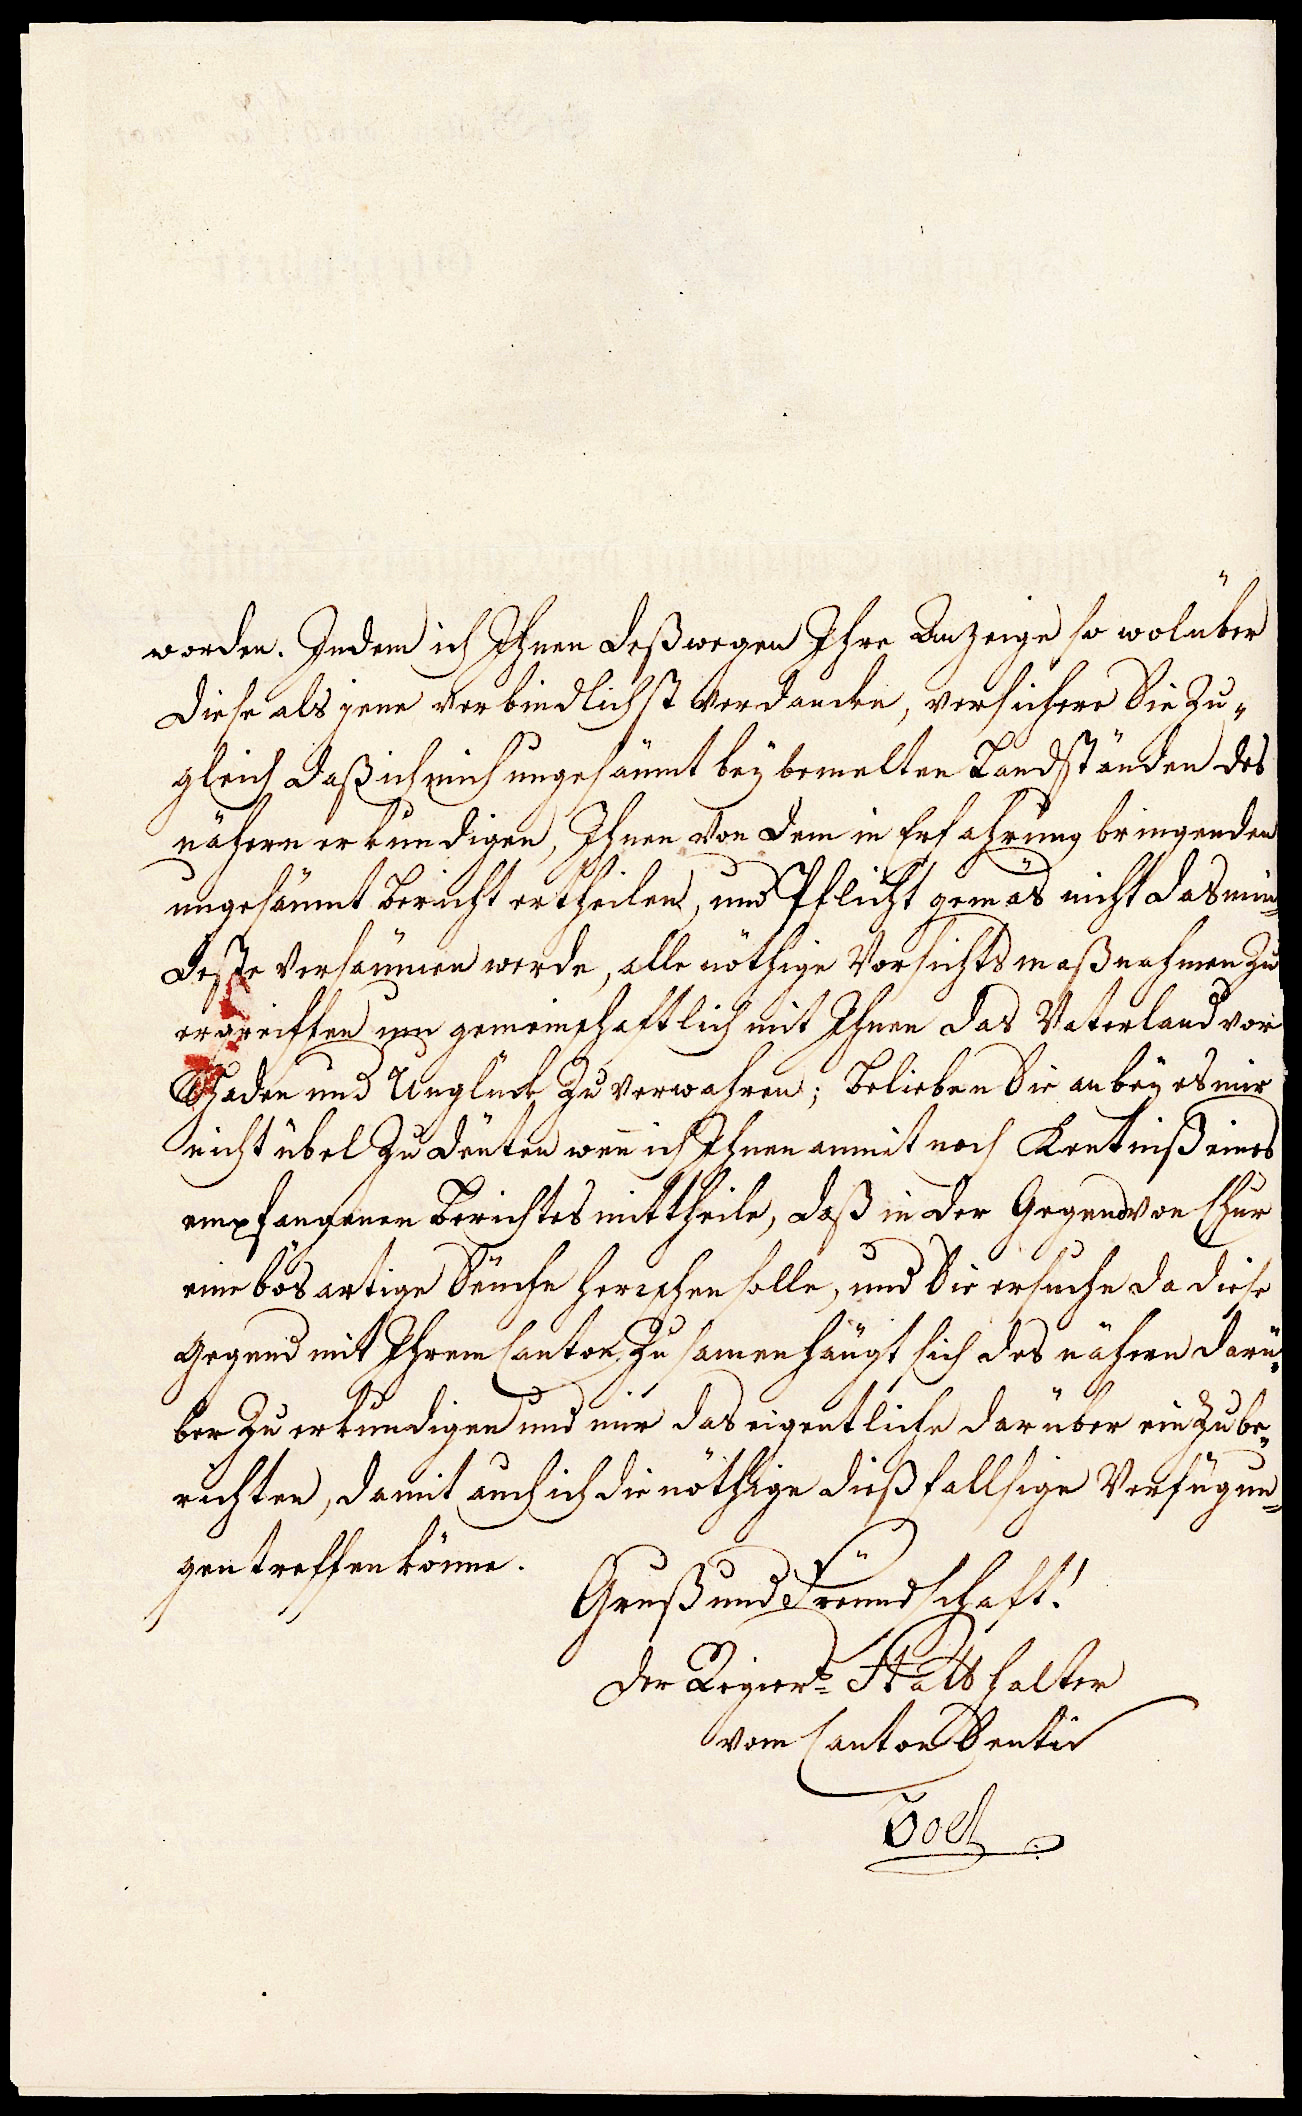 worden. Indem ich Ihnen deßwegen Ihre Anzeige so wol über
diese als jene verbindlichst verdancke, versichere Sie zu„
gleich daß ich mich ungesäumt bey bemelten Landständen des
nähern erkundigen, Ihnen von dem in Erfahrung bringenden
ungesäumt Bericht ertheilen, und Pflicht gemäs nicht das min„
deste versäumen werde, alle nöthige Vorsichtsmaßnahmen zu
ergreiffen um gemeinschaftlich mit Ihnen das Vaterland vor
Schaden und Unglück zu verwahren; Belieben Sie anbey es mir
nicht übel zu deuten wenn ich Ihnen anmit noch Kentniß eines
empfangenen Berichtes mittheile, daß in der Gegend von Chur
eine bösartige Seüche herschen solle, und Sie ersuche da diese
Gegend mit Ihrem Canton zusamenhängt sich des nähern darü„
ber zu erkundigen und mir das eigentliche darüber einzube„
richten, damit auch ich die nöthige dießfallsige Verfügun„
gen treffen könne.
Gruß und Freündschaft!
Der Regier: Statthalter
vom Canton Sentis
Bolt